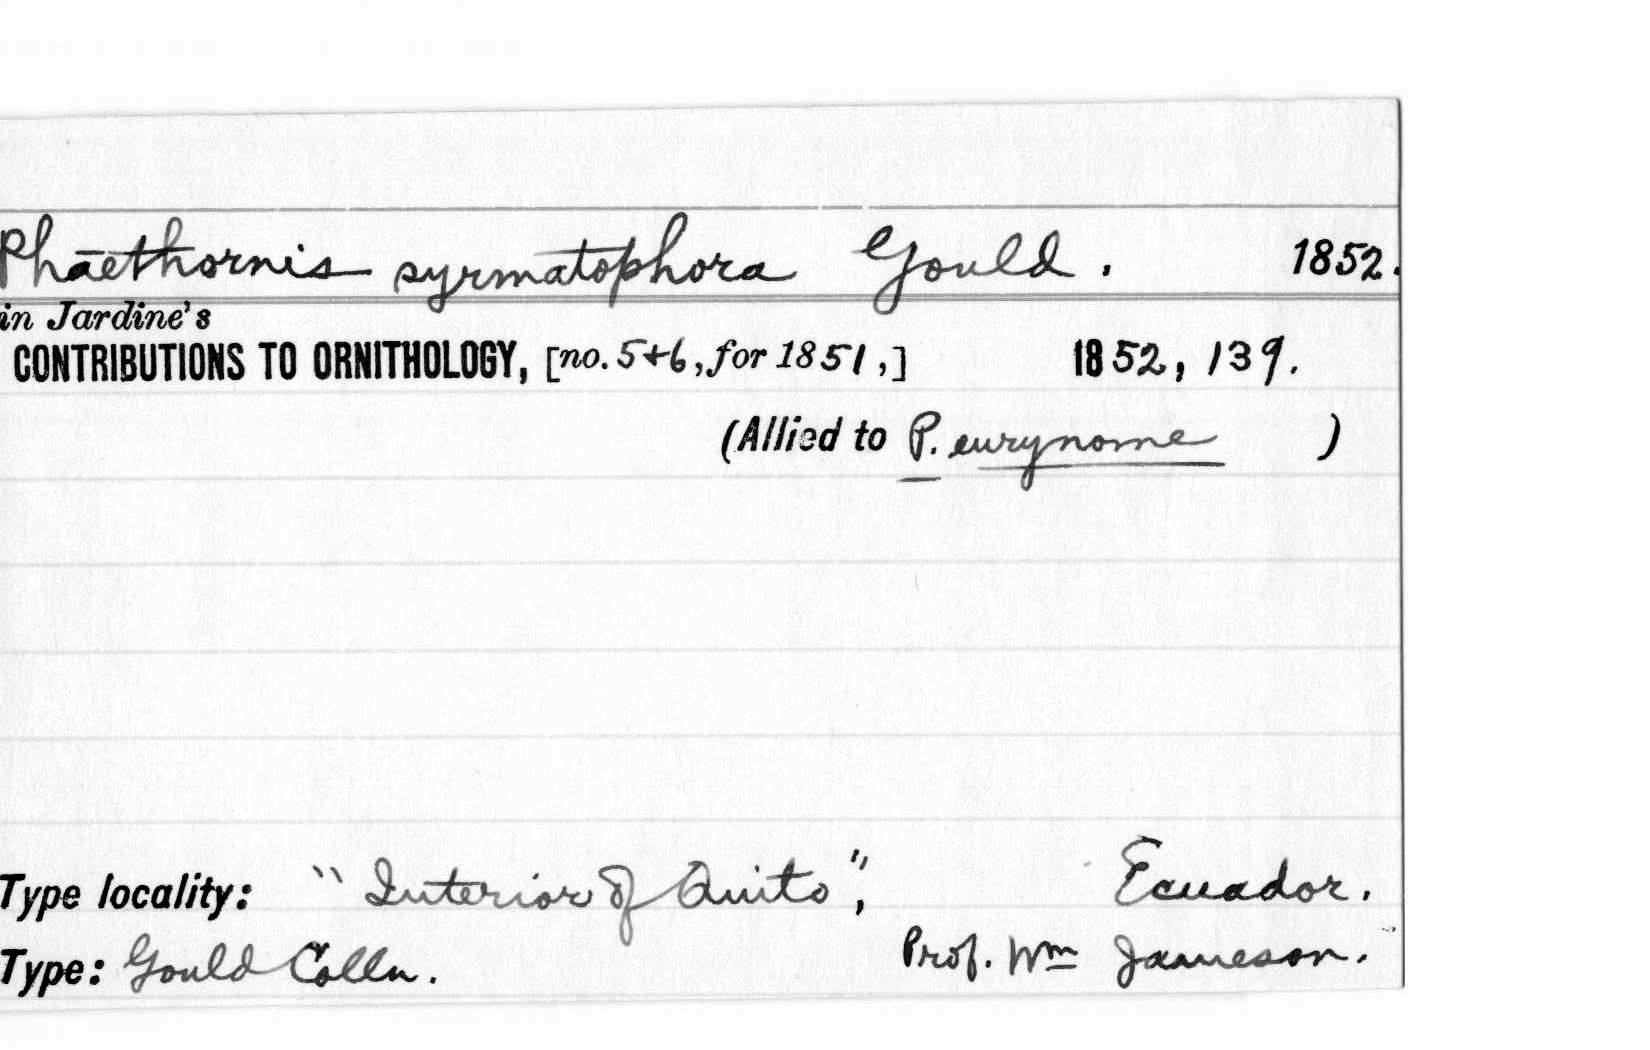 Phaethornis syrmatophora Gould. 1852.
in Jardine's
CONTRIBUTIONS TO ORNITHOLOGY, [no. 5+6, for 1851,] 1852, 139.
(Allied to P. eurynome )
Type locality: "Interior of Quito", Ecuador.
Type: Gould Colln. Prof. Wm Jameson.